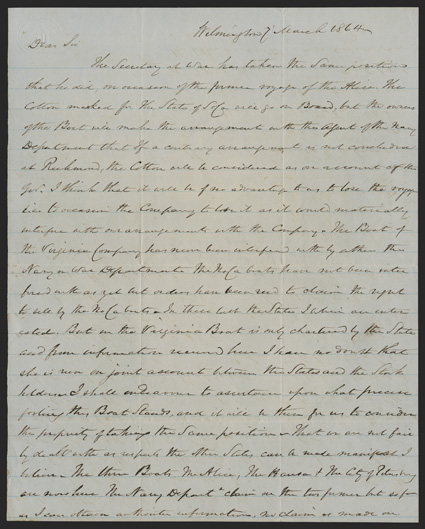 Wilmington 7 March 1864
Dear Sir
The Secretary of War has taken the same position
that he did, on occasion of the former voyage of the Alice. The
Cotton marked for the State of So Ca will go on Board, but the owners
of the Boat will make the arrangement with the Agent of the Navy
Department that if a contrary arrangement is not concluded
at Richmond, the Cotton will be considered as on account of the
Gov. I think that it will be of no advantage to us to lose the voyage
or to occasion the Company to lose it as it would materially
interfere with our arrangements with the Company. The Boat of
the Virginia Company has never been interfered with by either the
Navy or War Departments. The No Ca boats have not been inter
fered with as yet but orders have been recd to claim the right
to sell by the No Ca boats. In these both the States I believe are inter
ested. But in the Virginia Boat is only chartered by the State
and from information received here I have no doubt that
she is run on joint account between the State and the Stock
holders. I shall endeavour to ascertain upon what precise
footing this Boat stands, and it will be then for us to consider
the propriety of taking the same position. That we are not fair
ly dealt with as respects the other States can be made manifest I
believe. The three Boats, the Alice, The Hansa & The City of Petersburg
are now here. The Navy Depart claim on the two former but as far
as I can obtain authentic information, no claim is made on